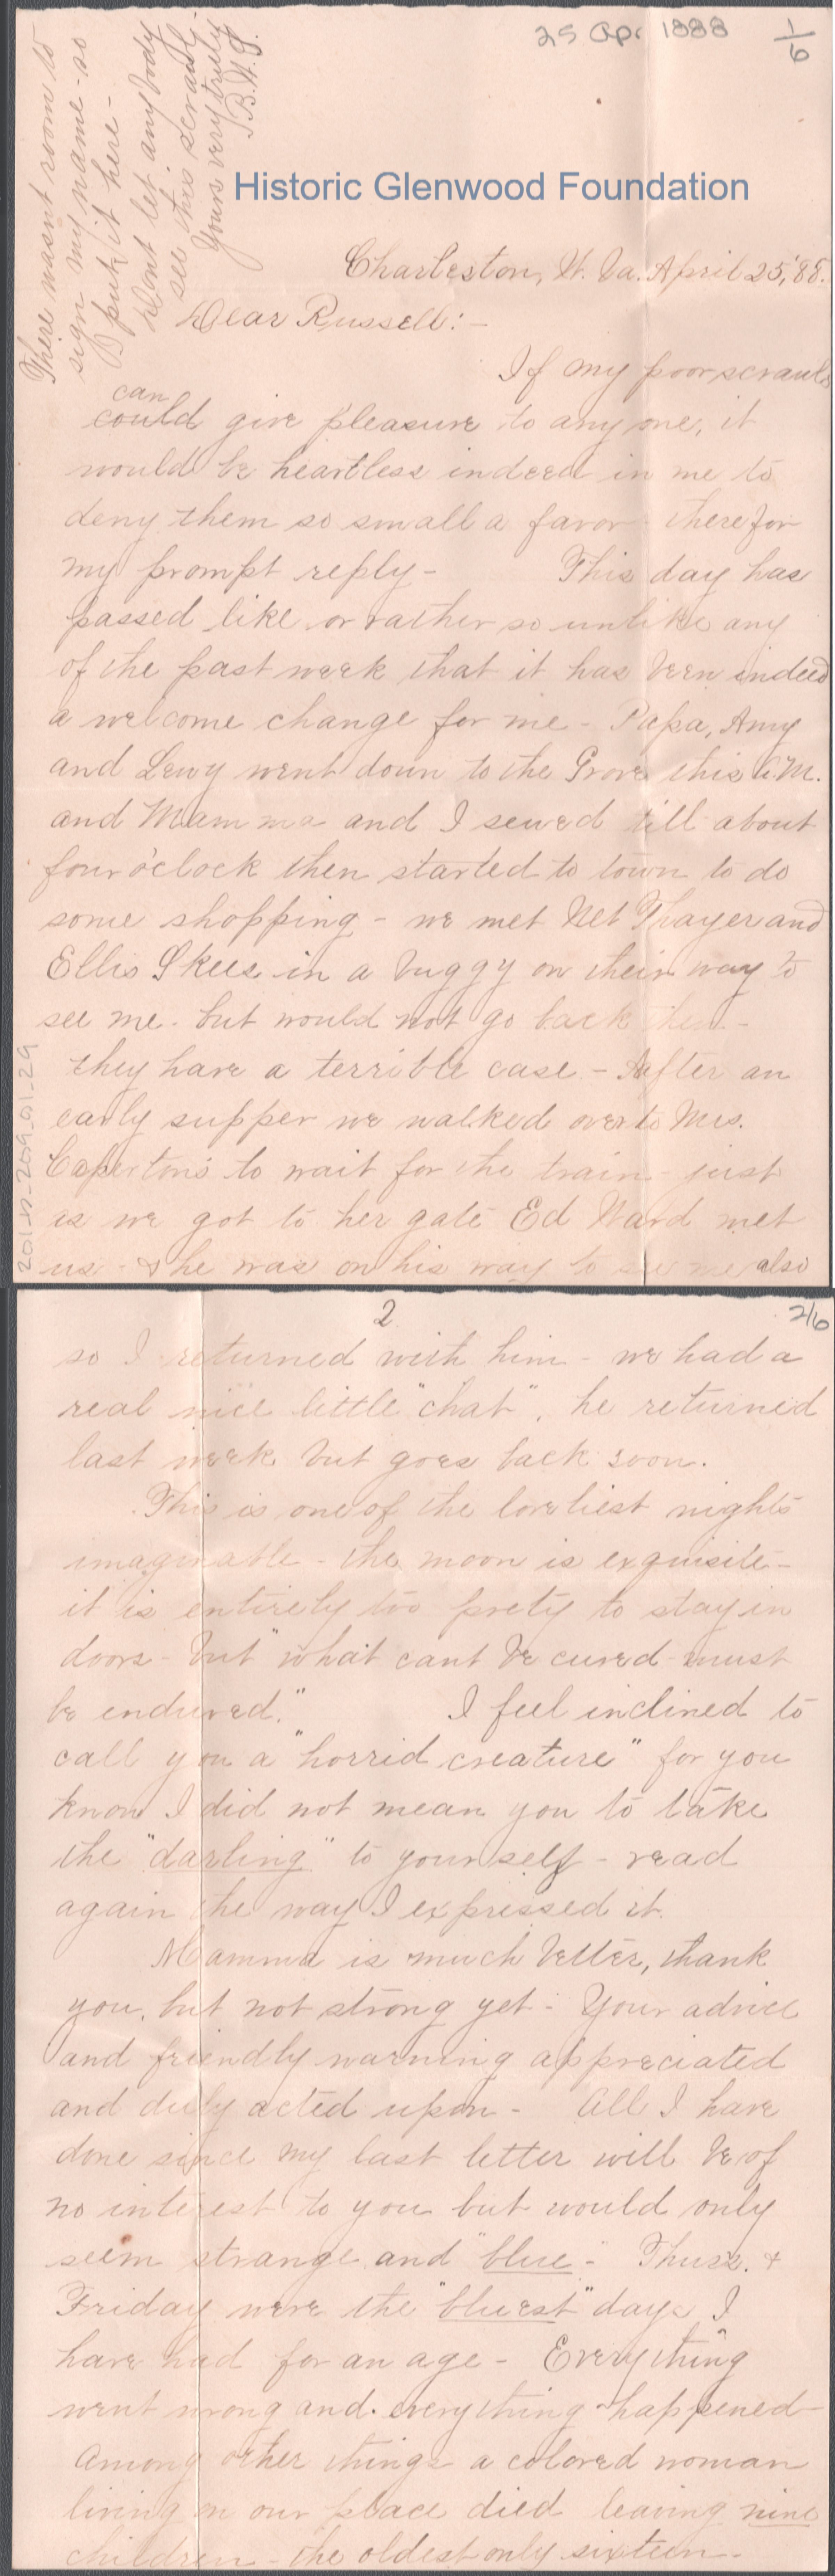 25 Apr 1888
1/6
There wasnt room to
sign my name - so
I put it here -
Dont let any body
see this scrawl -
Yours very truly
B.W.G.
Historic Glenwood Foundation
Charleston, W. Va. April 25,'88.
Dear Russell: -
If my poor scrawls
can
could give pleasure to any one, it
would be heartless indeed in me to
deny them so small a favor therefor
my prompt reply - This day has
passed like or rather so unlike any
of the past week that it has been indeed
a welcome change for me - Papa, Amy
and Lewy went down to the Grove this A.M.
and Mamma and I sewed till about
four o'clock then started to town to do
some shopping - we met Net Thayer and
Ellis Skees in a buggy on their way to
see me - but would not go back then -
they have a terrible case - After an
early supper we walked over to Mrs.
Caperton's to wait for the train - just
as we got to her gate Ed Ward met
us - & he was on his way to see me also
201-n-209-01-29
2
2/6
so I returned with him - we had a
real nice little "chat". he returned
last week but goes back soon.
This is one of the loveliest nights
imaginable - the moon is exquisite -
it is entirely too prety to stay in
doors - but "what cant be cured must
be endured." I feel inclined to
call you a "horrid creature" for you
know I did not mean you to take
the "darling" to yourself - read
again the way I expressed it.
Mamma is much better, thank
you, but not strong yet - Your advice
and friendly warning appreciated
and duly acted upon - All I have
done since my last letter will be of
no interest to you but would only
seem strange and "blue" - Thurs. &
Friday were the "bluest" days I
have had for an age - Everything
went wrong and everything happened -
Among other things a colored woman
living on our place died leaving nine
children - the oldest only sixteen -